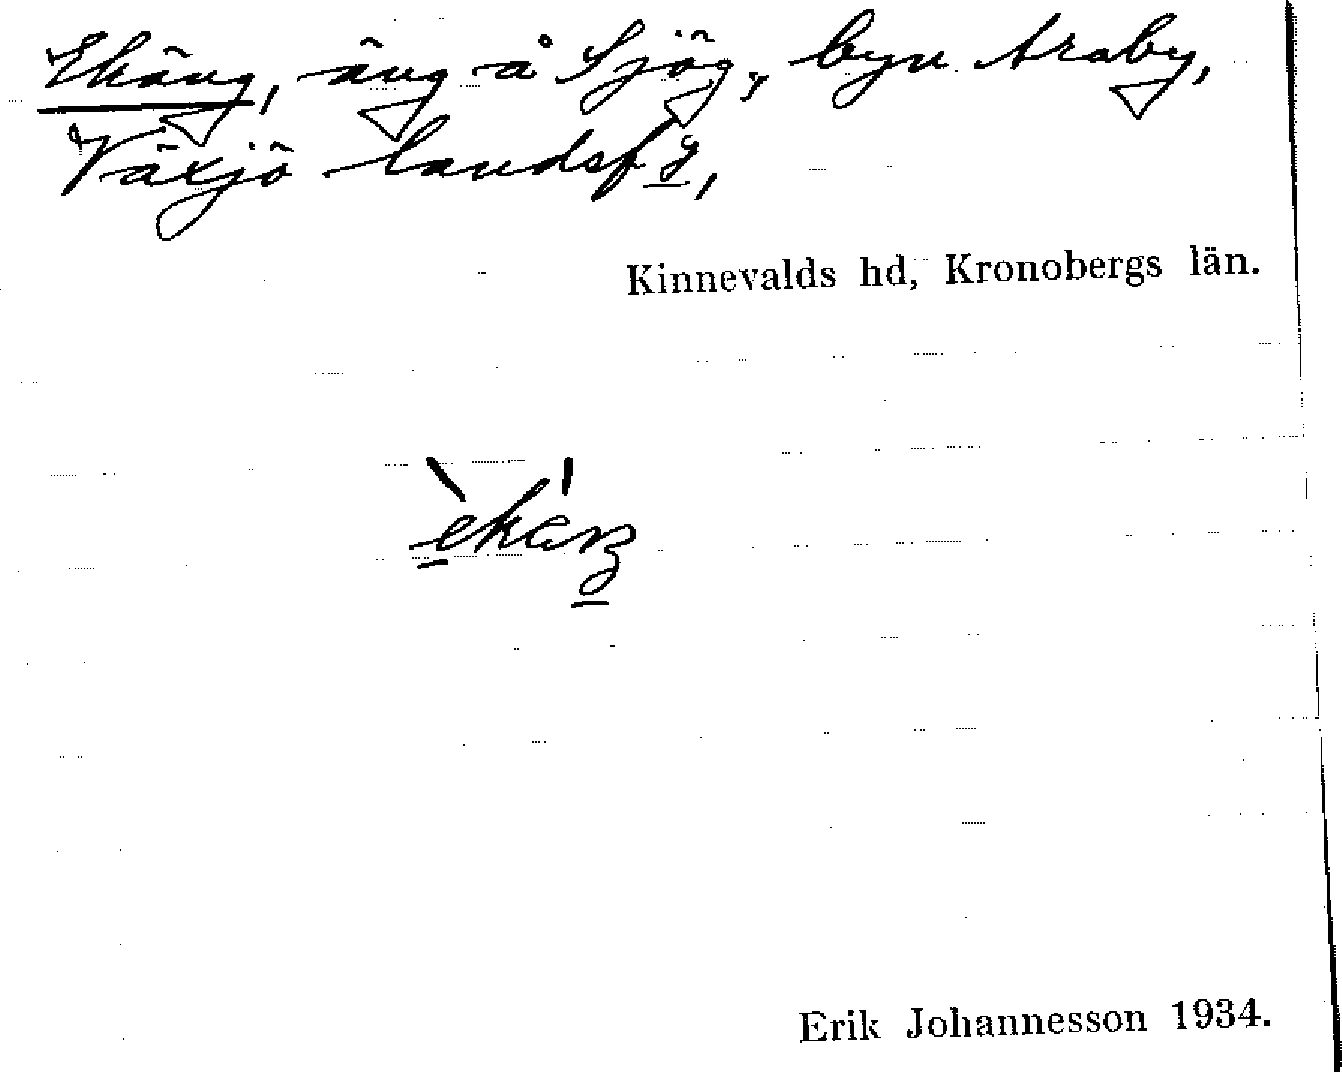 Ekäng, äng å Sjög., byn Araby,
Växjö landsf g,
Kinnevalds hd, Kronobergs län.
Erik Johannesson 1934.